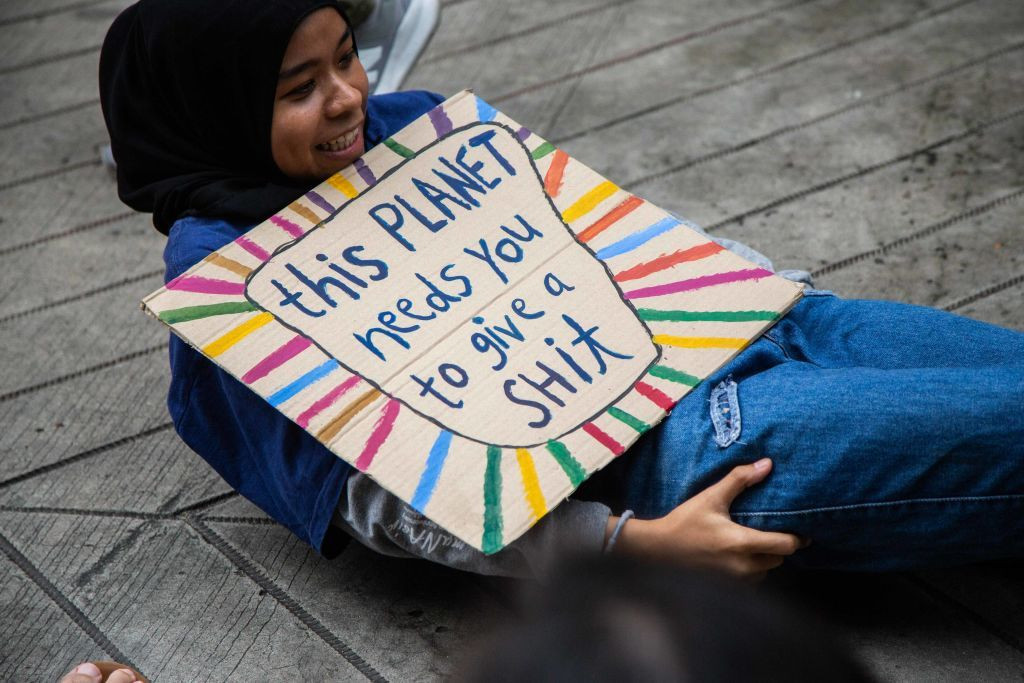 this PLANET
needs you
to give a
SHit